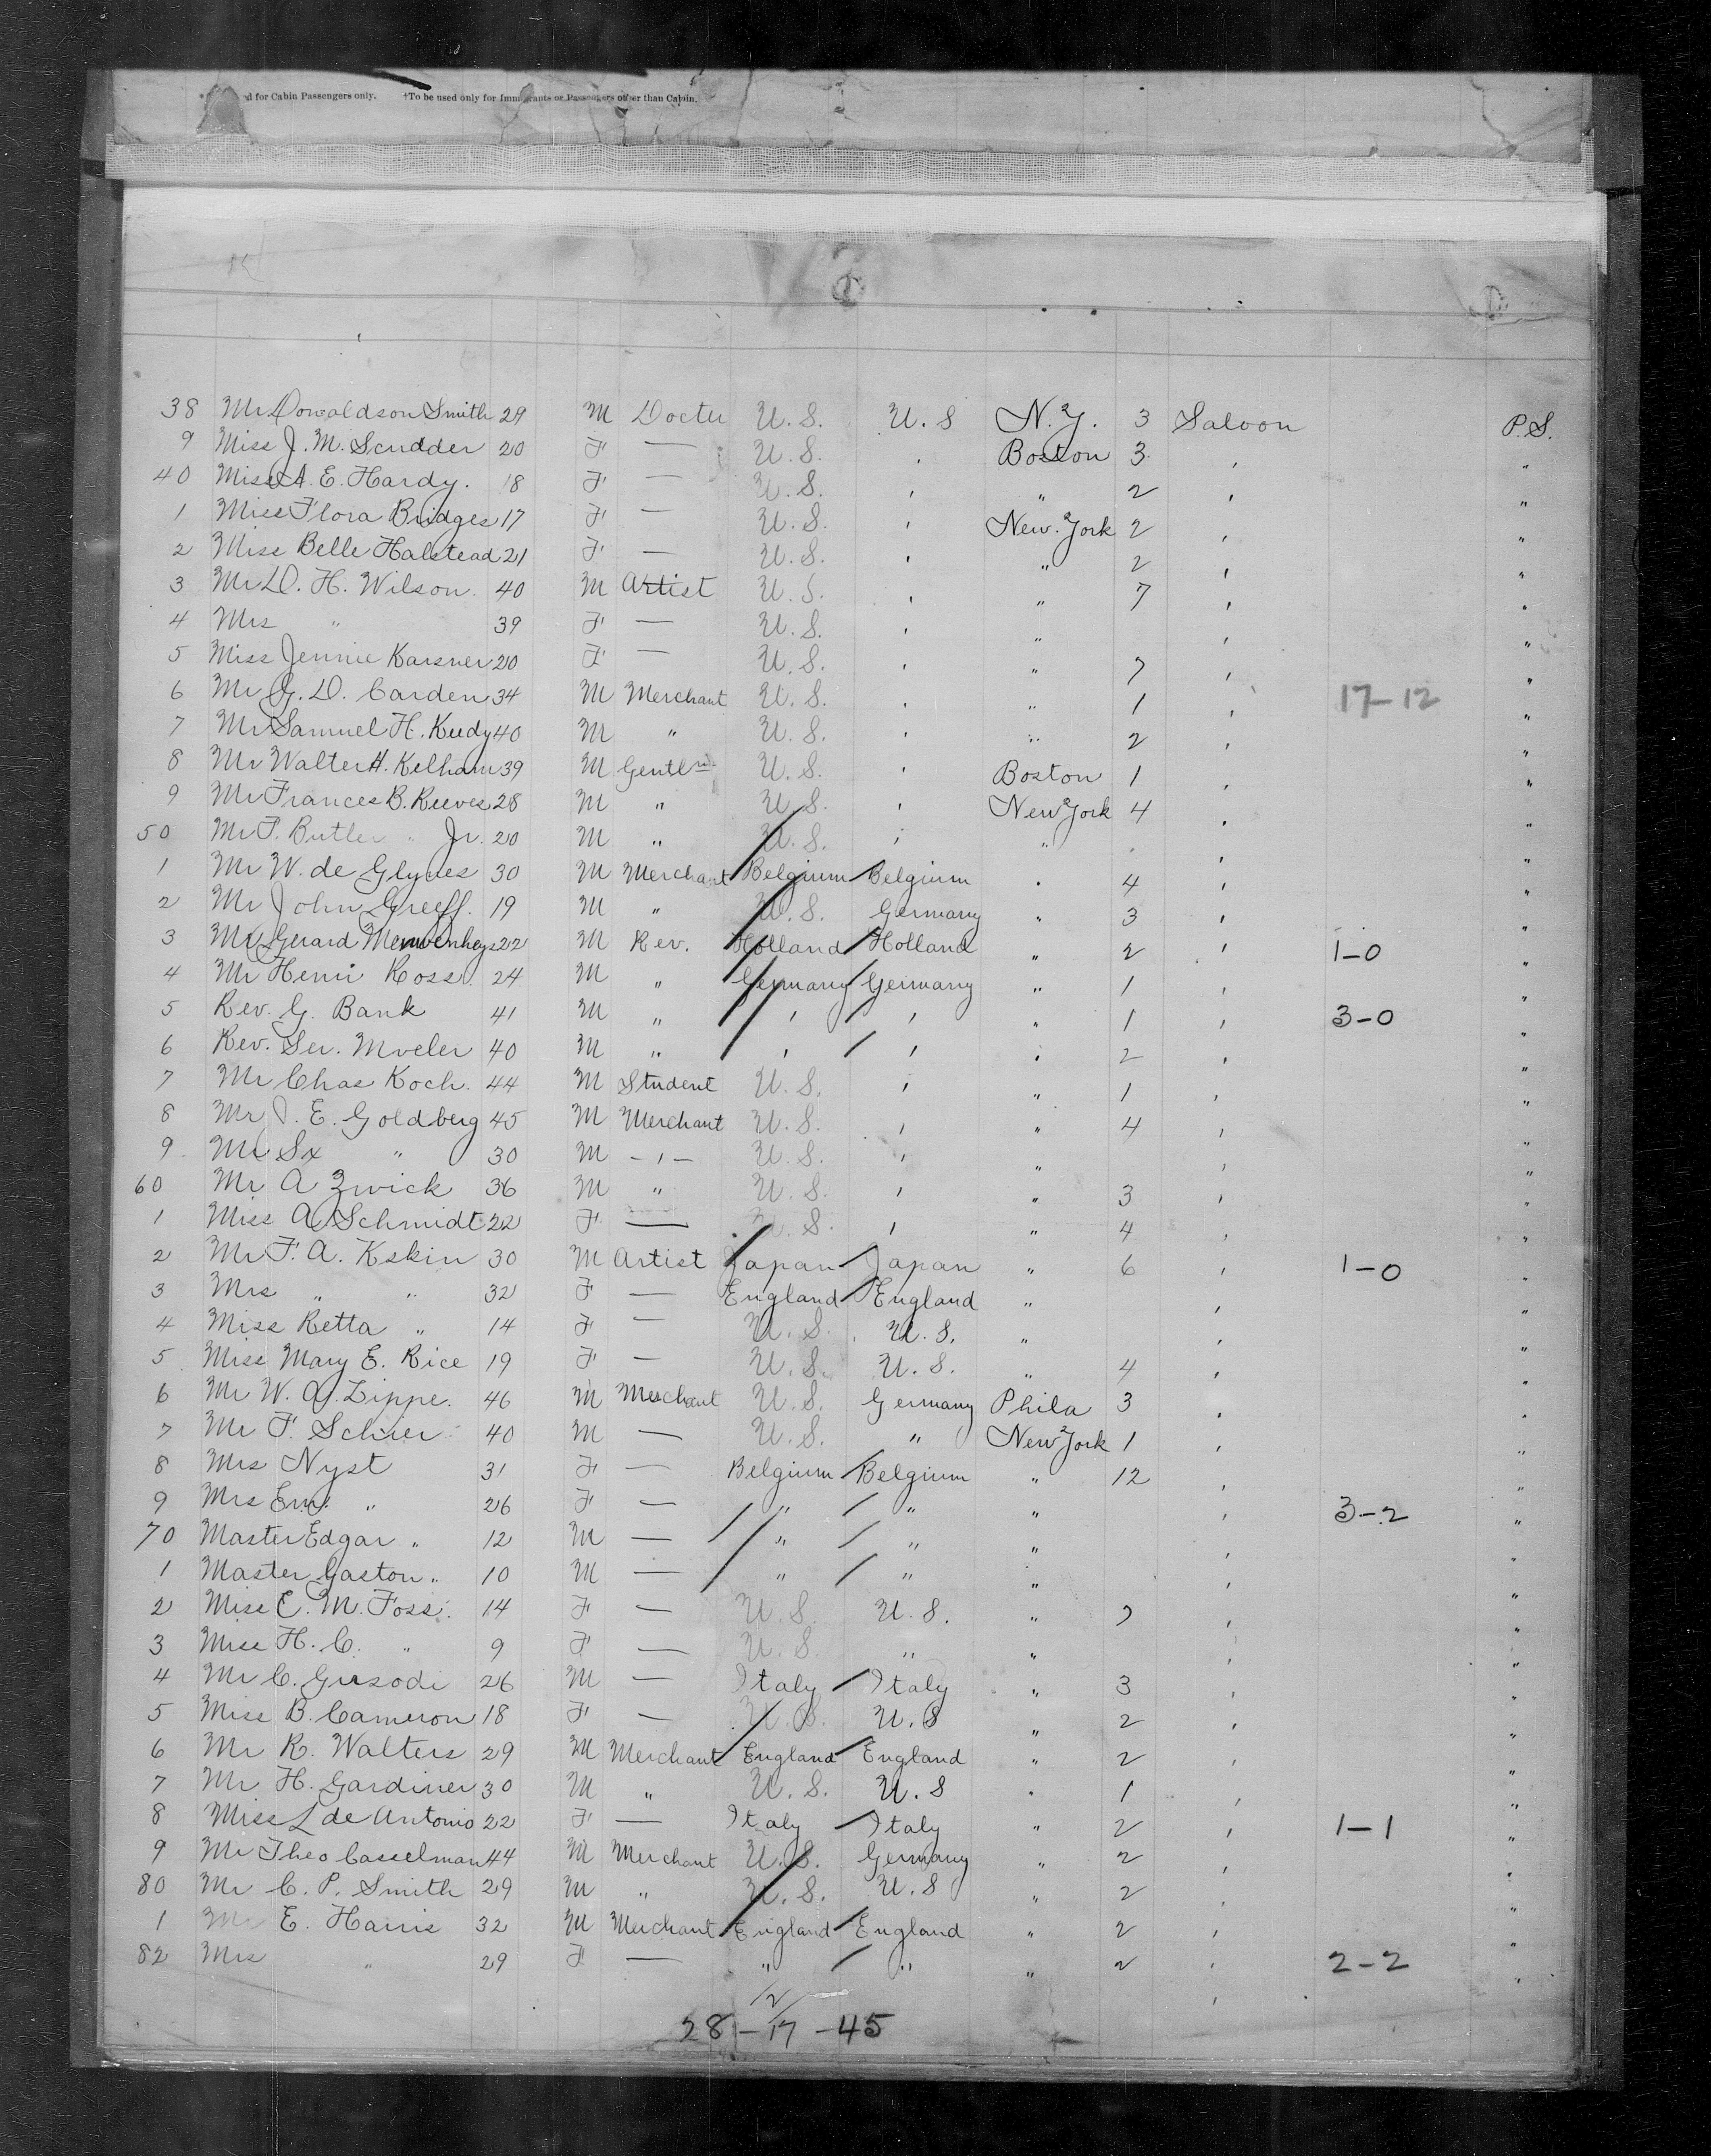 d for Cabin Passengers only. †To be used only for Immigrants or Passengers other than Cabin.
38 Mr Donaldson Smith 29 M Docter U.S. U.S N.Y. 3 Saloon P.S.
9 Miss J. M. Scudder 20 F — U.S. , Boston 3 , "
40 Miss A. E. Hardy. 18 F — U.S. , " 2 , "
1 Miss Flora Bridges 17 F — U.S. , New York 2 , "
2 Miss Belle Halstead 21 F — U.S. , " 2 , "
3 Mr D. H. Wilson. 40 M Artist U.S. , " 7 , "
4 Mrs " 39 F — U.S. , " , "
5 Miss Jennie Karsner 20 F — U.S. , " 7 , "
6 Mr G. D. Carden 34 M Merchant U.S. , " 1 , 17-12 "
7 Mr Samuel H. Kudy 40 M " U.S. , " 2 , "
8 Mr Walter H. Kelham 39 M Gentlm U.S. , Boston 1 , "
9 Mr Frances B. Reeves 28 M " U.S. , New York 4 , "
50 Mr F. Butler " Jr. 20 M " U.S. , " , "
1 Mr W. de Glynes 30 M Merchant Belgium Belgium " 4 , "
2 Mr John Greeff. 19 M " U.S. Germany " 3 , "
3 Mr Gerard 22 M Rev. Holland Holland " 2 , 1-0 "
4 Mr Henri Ross. 24 M " Germany Germany " 1 , "
5 Rev. G. Bank 41 M " , , " 1 , 3-0 "
6 Rev. Ser. Mveler 40 M " , , " 2 , "
7 Mr Chas Koch. 44 M Student U.S. , " 1 , "
8 Mr J. E. Goldberg 45 M Merchant U.S. , " 4 , "
9 Mr Sx " 30 M -,- U.S. , " , "
60 Mr A Zwick 36 M " U.S. , " 3 , "
1 Miss A Schmidt 22 F — U.S. , " 4 , "
2 Mr F. A. Kskin 30 M Artist Japan Japan " 6 , 1-0 "
3 Mrs " " 32 F — England England " , "
4 Miss Retta " 14 F — U.S. U.S. " , "
5 Miss Mary E. Rice 19 F — U.S. U.S. " 4 , "
6 Mr W. A. Zippe. 46 M Merchant U.S. Germany Phila 3 , "
7 Mr F. Schier 40 M — U.S. " New York 1 , "
8 Mrs Nyst 31 F — Belgium Belgium " 12 , "
9 Mrs Em. " 26 F — " " " , 3-2 "
70 Master Edgar " 12 M — " " " , "
1 Master Gaston " 10 M — " " " , "
2 Miss E. M. Foss. 14 F — U.S. U.S. " 7 , "
3 Miss H. C. " 9 F — U.S. " " , "
4 Mr C. Gusodi 26 M — Italy Italy " 3 , "
5 Miss B. Cameron 18 F — U.S. U.S " 2 , "
6 Mr R. Walters 29 M Merchant England England " 2 , "
7 Mr H. Gardiner 30 M " U.S. U.S " 1 , "
8 Miss L de Antonio 22 F — Italy Italy " 2 , 1-1 "
9 Mr Theo Casselman 44 M Merchant U.S. Germany " 2 , "
80 Mr C. P. Smith 29 M " U.S. U.S " 2 , "
1 Mr E. Harris 32 M Merchant England England " 2 , "
82 Mrs " 29 F — " " " 2 , 2-2 "
12
28-17-45